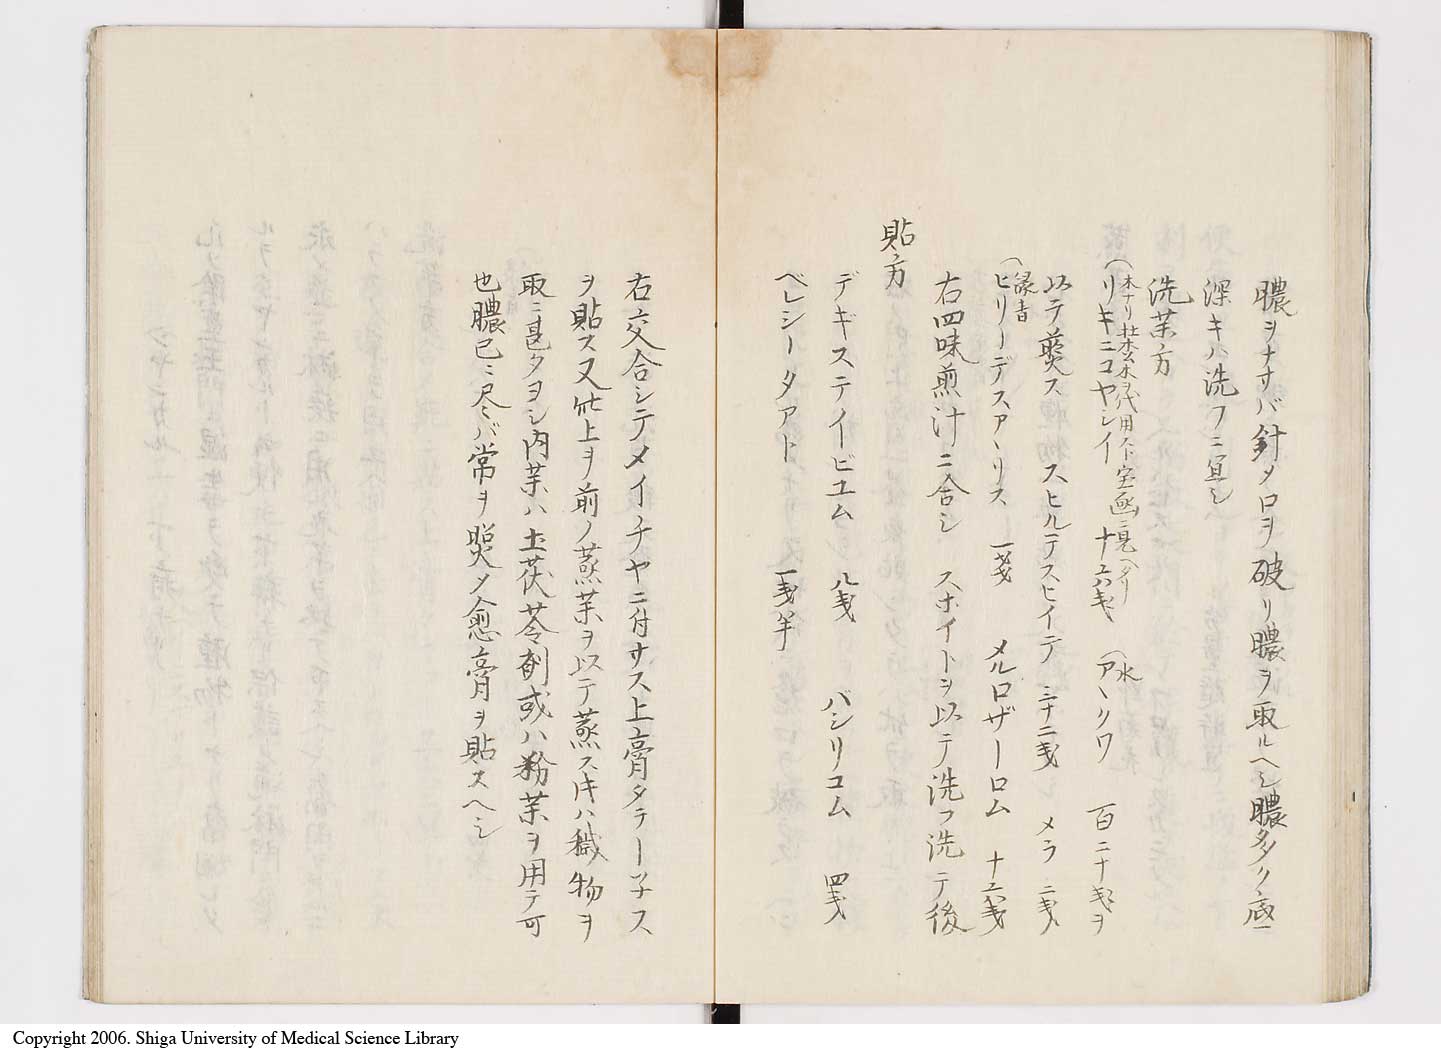 膿ヲナサバ針メロヲ破リ膿ヲ取ルヘシ膿多ク底
深キハ洗フニ宜シ
洗薬方
(木ナリ杜松木ヲ代用ス下宝函ニ見ヘタリ
リキニコヤシイ 十六戔 (水 アヽクワ 百二十戔ヲ
以テ煎ス スヒルテスヒイデ 三十二戔 メラ 二戔
(縁青
ヒリーデスアーリス 一戔 メルロザーロム 十六戔
右四味煎汁ニ合シ スホイトヲ以テ洗フ洗テ後
貼方
デギステイービユム 八戔 バシリコム 四戔
ベレシータアト 一戔半
右交合シテメイチヤニ付サス上膏タテーネス
ヲ貼ス又此上ヲ前ノ蒸薬ヲ以テ蒸スキハ穢物ヲ
取ニ甚タヨシ内薬ハ土茯苓剤或ハ粉薬ヲ用テ可
也膿已ニ尽ハ常ヲ貼メ愈膏ヲ貼スヘシ
Copyright 2006. Shiga University of Medical Science Library